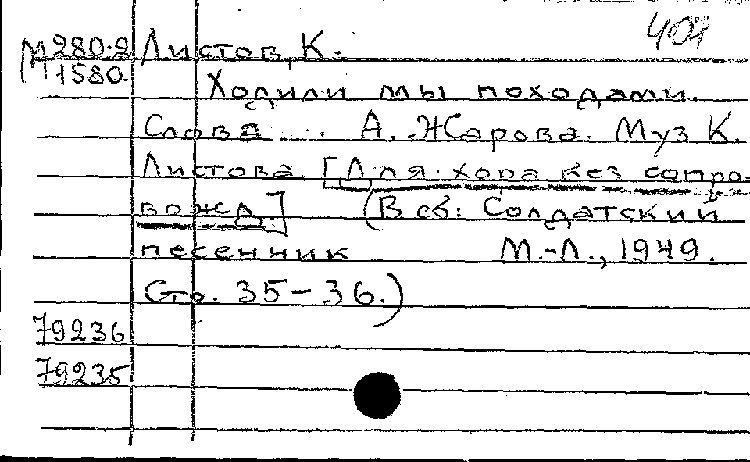 407
М 280.2 Листов, К.
1580 Ходили мы походами.
Слова ... А. Жарова. Муз К.
Листова [Для хора без сопро-
вожд.] (В сб: Солдатский
песенник М.-Л., 1949.
Стр. 35-36.)
79236
79235